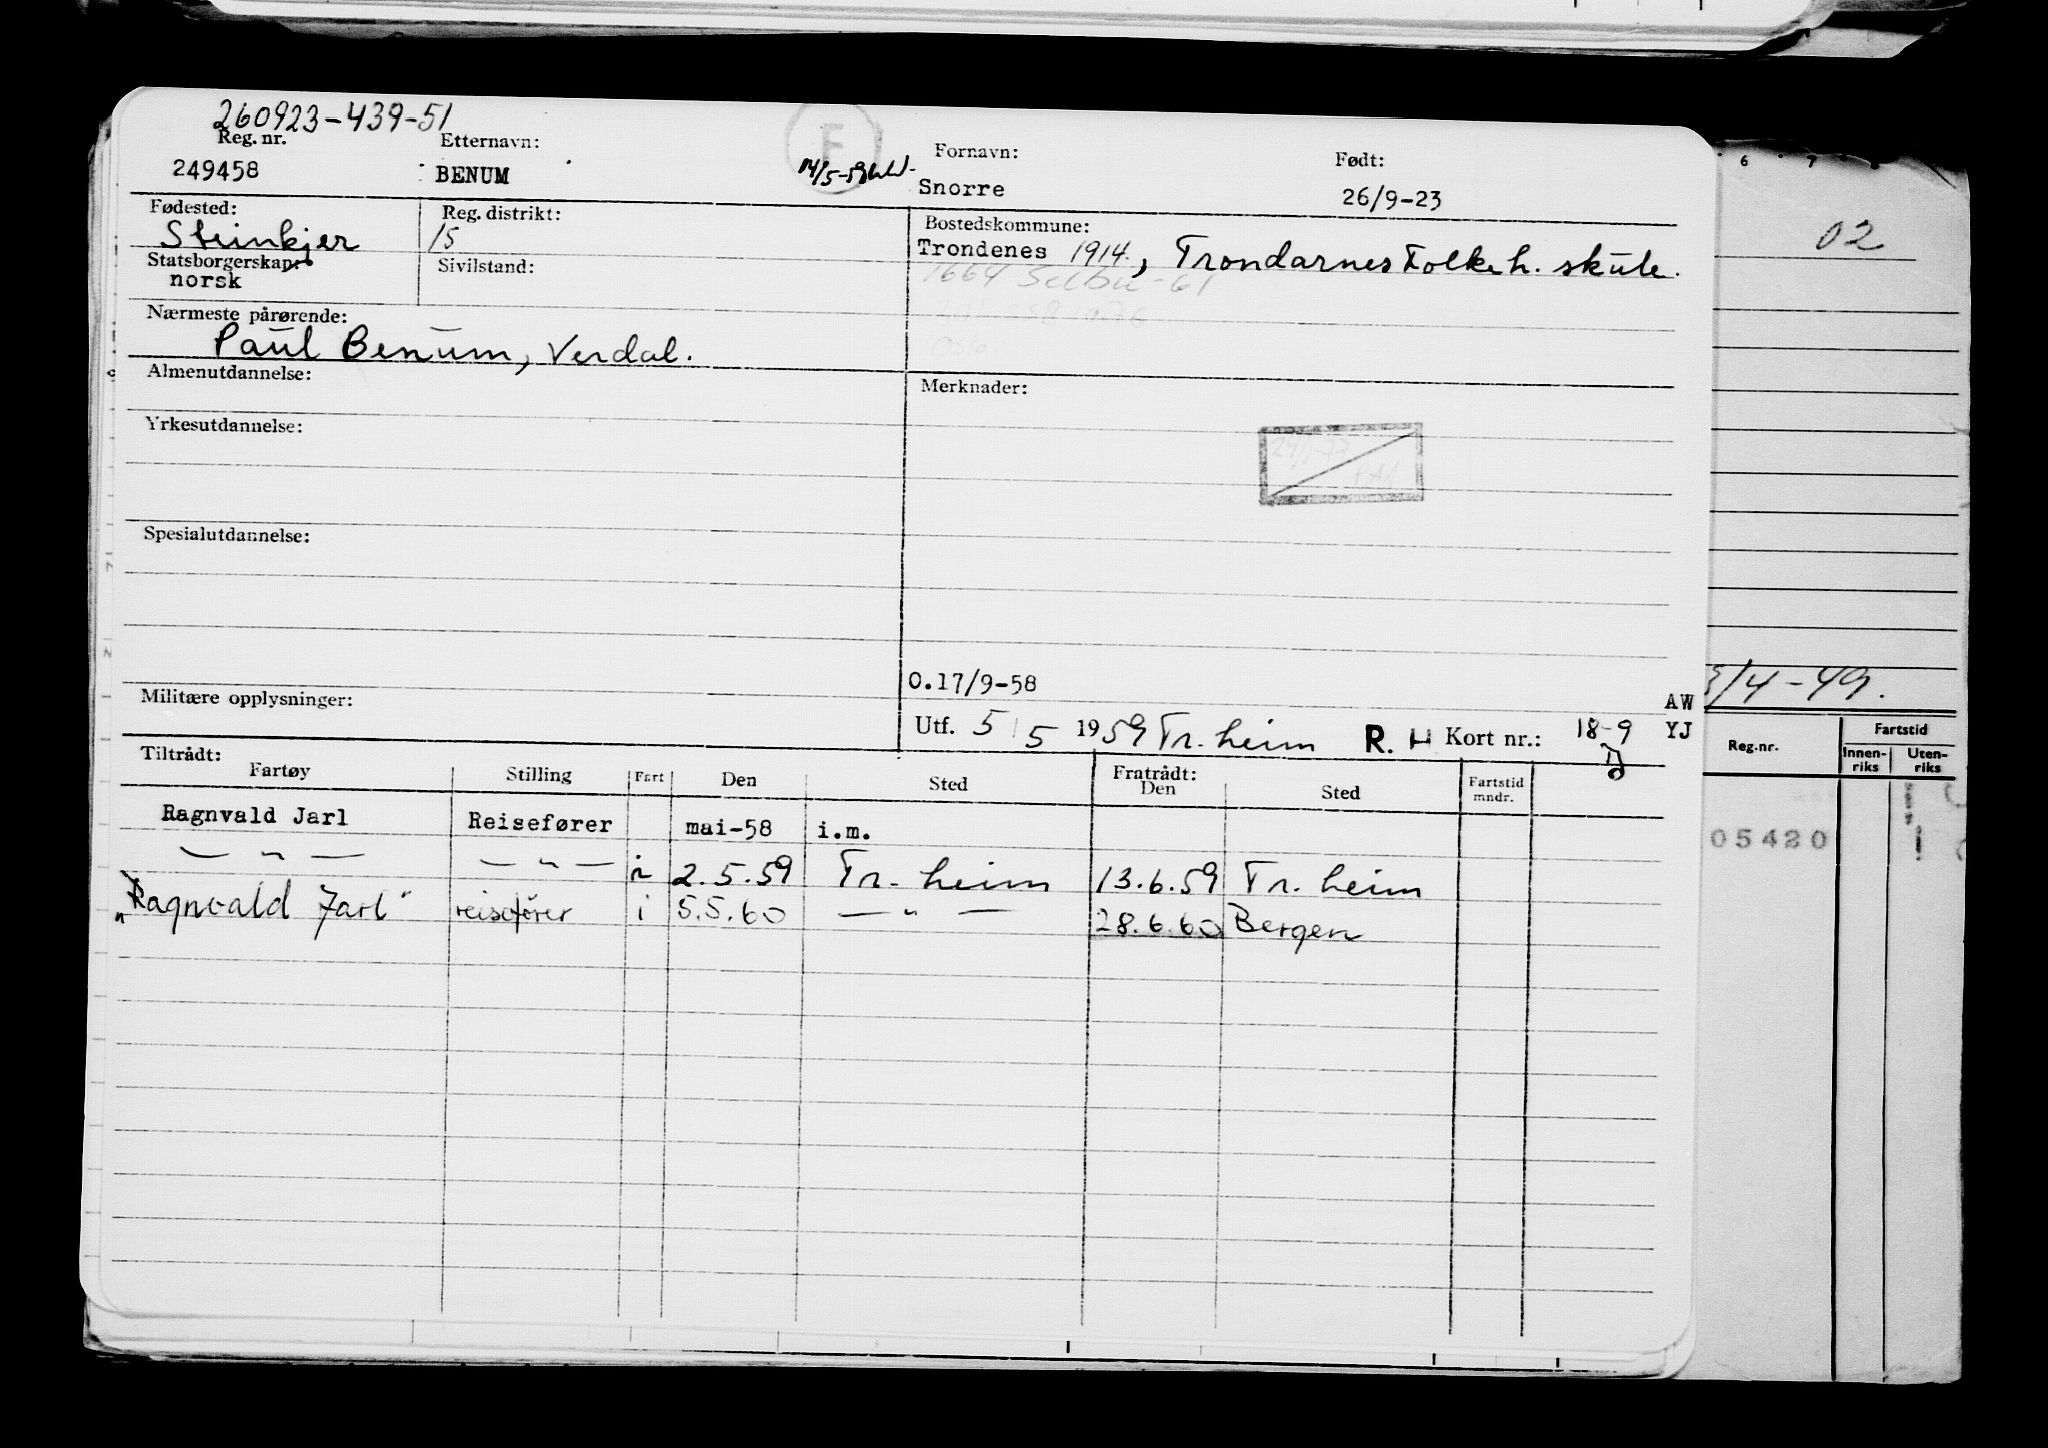 260923-439-51
Reg. nr. Etternavn: F Fornavn: Født:
249458 BENUM 14/5-59 Snorre 26/9-23
Fødested: Reg. distrikt: Bostedskommune:
Steinkjer 15 Trondenes 1914, Trondarnes Folkeh. skule.
Statsborgerskap: Sivilstand: 1664 Selbu-61
norsk
Nærmeste pårørende:
Paul Benum, Verdal.
Almenutdannelse: Merknader:
Yrkesutdannelse:
Spesialutdannelse:
O.17/9-58 AW
Militære opplysninger: Utf. 5/5 1959 Tr. heim R. H Kort nr.: 18-9 YJ
Tiltrådt: Fratrådt:
Fartøy Stilling Fart Den Sted Den Sted Fartstid mndr.
Ragnvald Jarl Reisefører mai-58 i.m.
— " — — " — i 2.5.59 Tr. heim 13.6.59 Tr. heim
"Ragnvald Jarl" reisefører i 5.5.60 — " — 28.6.60 Bergen
6 7
02
/4-49.
Reg.nr. Fartstid
Innen-riks Uten-riks
05420